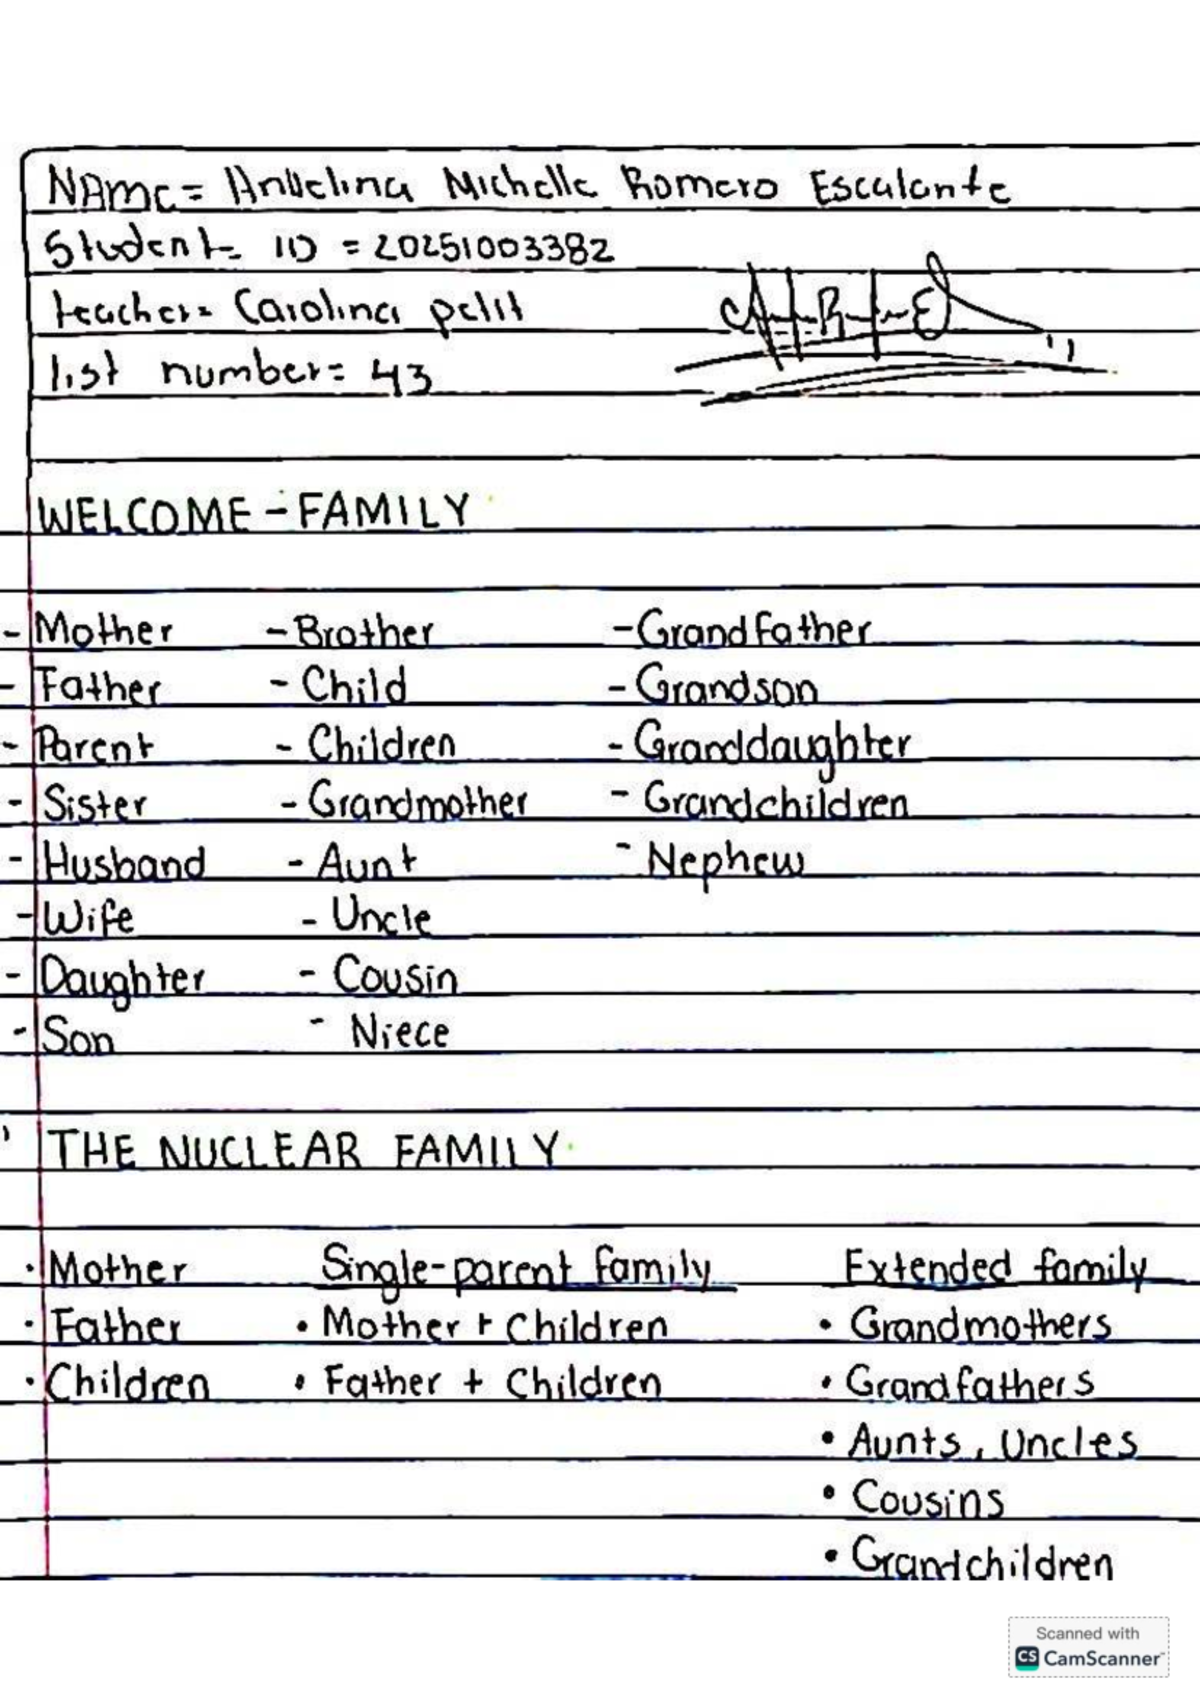 NAme= Michelle Romero Escalante
Student ID = 20251003382
teacher= Carolina
list number= 43
WELCOME - FAMILY
- Mother - Brother - Grandfather
- Father - Child - Grandson
- Parent - Children - Granddaughter
- Sister - Grandmother - Grandchildren
- Husband - Aunt - Nephew
- Wife - Uncle
- Daughter - Cousin
- Son - Niece
THE NUCLEAR FAMILY
· Mother Single-parent family Extended family
· Father • Mother + Children • Grandmothers
· Children • Father + Children • Grandfathers
• Aunts, Uncles
• Cousins
• Grandchildren
Scanned with
CS CamScanner